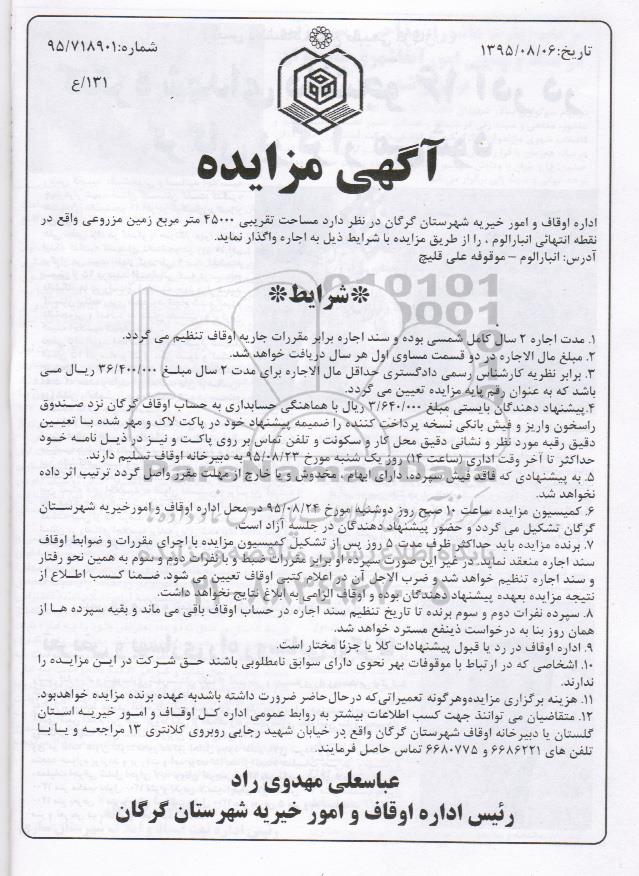 تاریخ:۱۳۹۵/۰۸/۰۶
شماره:۹۵/۷۱۸۹۰۱
۱۳۱/ع
آگهی مزایده
اداره اوقاف و امور خیریه شهرستان گرگان در نظر دارد مساحت تقریبی ۴۵۰۰۰ متر مربع زمین مزروعی واقع در
نقطه انتهائی انبارالوم ، را از طریق مزایده با شرایط ذیل به اجاره واگذار نماید.
آدرس: انبارالوم – موقوفه علی قلیچ
*شرایط*
۱. مدت اجاره ۲ سال کامل شمسی بوده و سند اجاره برابر مقررات جاریه اوقاف تنظیم می گردد.
۲. مبلغ مال الاجاره در دو قسمت مساوی اول هر سال دریافت خواهد شد.
۳. برابر نظریه کارشناس رسمی دادگستری حداقل مال الاجاره برای مدت ۲ سال مبلغ ۳۶/۴۰۰/۰۰۰ ریال می
باشد که به عنوان رقم پایه مزایده تعیین می گردد.
۴.پیشنهاد دهندگان بایستی مبلغ ۳/۶۴۰/۰۰۰ ریال با هماهنگی حسابداری به حساب اوقاف گرگان نزد صندوق
راسخون واریز و فیش بانکی نسخه پرداخت کننده را ضمیمه پیشنهاد خود در پاکت لاک و مهر شده با تعیین
دقیق رقبه مورد نظر و نشانی دقیق محل کار و سکونت و تلفن تماس بر روی پاکت و نیز در ذیل نامه خود
حداکثر تا آخر وقت اداری (ساعت ۱۴) روز یک شنبه مورخ ۹۵/۰۸/۲۳ به دبیرخانه اوقاف تسلیم دارند.
۵. به پیشنهادی که فاقد فیش سپرده، دارای ابهام، مخدوش و یا خارج از مهلت مقرر واصل گردد ترتیب اثر داده
نخواهد شد.
۶. کمیسیون مزایده ساعت ۱۰ صبح روز دوشنبه مورخ ۹۵/۰۸/۲۴ در محل اداره اوقاف و امورخیریه شهرستان
گرگان تشکیل می گردد و حضور پیشنهاد دهندگان در جلسه آزاد است.
۷. برنده مزایده باید حداکثر ظرف مدت ۵ روز پس از تشکیل کمیسیون مزایده با اجرای مقررات و ضوابط اوقاف
سند اجاره منعقد نماید. در غیر این صورت سپرده او برابر مقررات ضبط و با نفرات دوم و سوم به همین نحو رفتار
و سند اجاره تنظیم خواهد شد و ضرب الاجل آن در اعلام کتبی اوقاف تعیین می شود. ضمنا کسب اطلاع از
نتیجه مزایده بعهده پیشنهاد دهندگان بوده و اوقاف الزامی به ابلاغ نتایج نخواهد داشت.
۸. سپرده نفرات دوم و سوم برنده تا تاریخ تنظیم سند اجاره در حساب اوقاف باقی می ماند و بقیه سپرده ها از
همان روز بنا به درخواست ذینفع مسترد خواهد شد.
۹. اداره اوقاف در رد یا قبول پیشنهادات کلا یا جزئا مختار است.
۱۰. اشخاصی که در ارتباط با موقوفات بهر نحوی دارای سوابق نامطلوبی باشند حق شرکت در این مزایده را
ندارند.
۱۱. هزینه برگزاری مزایده وهرگونه تعمیراتی که درحال حاضر ضرورت داشته باشدبه عهده برنده مزایده خواهدبود.
۱۲. متقاضیان می توانند جهت کسب اطلاعات بیشتر به روابط عمومی اداره کل اوقاف و امور خیریه استان
گلستان یا دبیرخانه اوقاف شهرستان گرگان واقع در خیابان شهید رجایی روبروی کلانتری ۱۳ مراجعه و یا با
تلفن های ۶۶۸۶۲۲۱ و ۶۶۸۰۷۷۵ تماس حاصل فرمایند.
عباسعلی مهدوی راد
رئیس اداره اوقاف و امور خیریه شهرستان گرگان